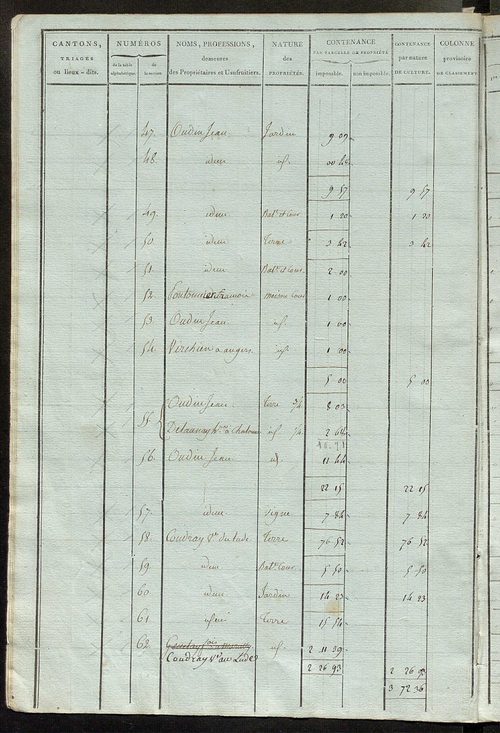 CANTONS, TRIAGES ou lieux-dits. NUMÉROS de la table alphabétique. de la section. NOMS, PROFESSIONS, demeures des Propriétaires et Usufruitiers. NATURE des PROPRIÉTÉS. CONTENANCE PAR PARCELLE DE PROPRIÉTÉ imposable. non imposable. CONTENANCE par nature DE CULTURE. COLONNE provisoire DE CLASSEMENT.
47. Oudin Jean Jardin 9 09
48. idem id. 00 48
9 57 9 57
49. idem Bat.t et cour 1 20 1 20
50. idem Terre 3 42 3 42
51. idem Bat.t et cour 2 00
52. François maison cour 1 00
53. Oudin Jean id. 1 00
54. a angers id. 1 00
5 00 5 00
Oudin Jean Terre 3/4 8 03
55. Delaunay à 1/4 2 68
10.71
56. Oudin Jean id. 11 44
22 15 22 15
57. idem vigne 7 84 7 84
58. Coudray V.e du Lude Terre 76 52 76 52
59. idem Bat.t Cour 5 50 5 50
60 idem Jardin 14 23 14 23
61 idem Terre 15 54
62. id. 2 11 39
Coudray V.e au Lude
2 26 93 2 26 93
3 72 36